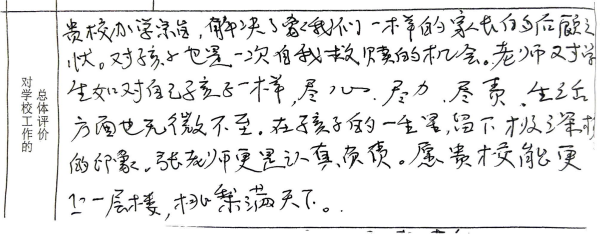 对学校工作的
总体评价
贵校办学宗旨,解决了像我们一样的家长的后顾之
忧。对孩子也是一次自我救赎的机会。老师对学
生如对自己孩子一样,尽心、尽力、尽责。生活
方面也无微不至。在孩子的一生里,留下极之深
的印象。张老师更是认真负责。愿贵校能更
上一层楼,桃梨满天下。